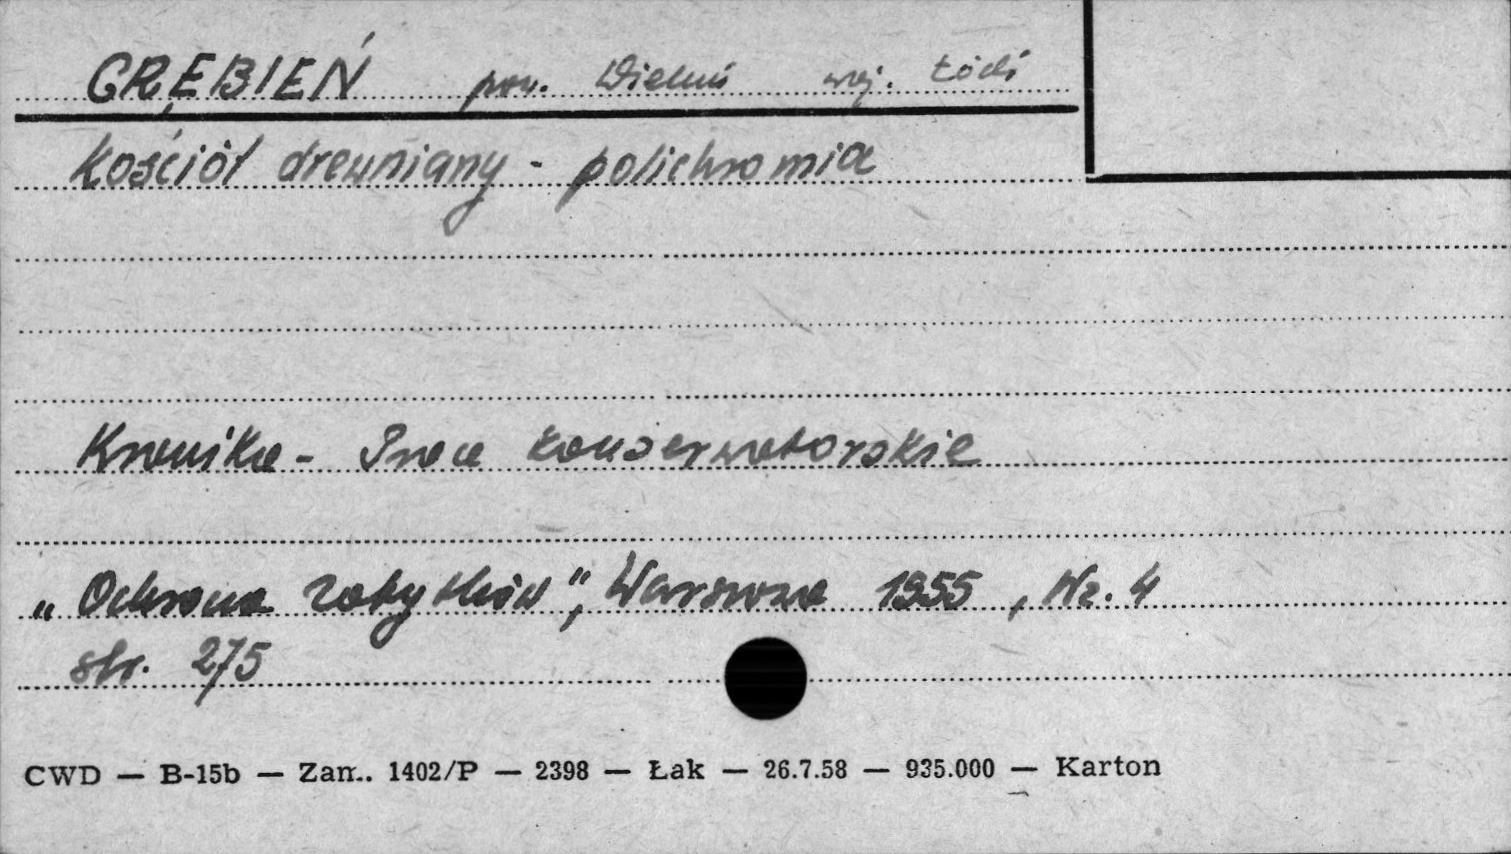 GRĘBIEŃ pow. Wieluń woj. Łódź
Kościół drewniany - polichromia
Kronika - Prace konserwatorskie
„Ochrona Zabytków”, Warszawa 1955, Nr. 4
str. 275
CWD — B-15b — Zam. 1402/P — 2398 — Łak — 26.7.58 — 935.000 — Karton